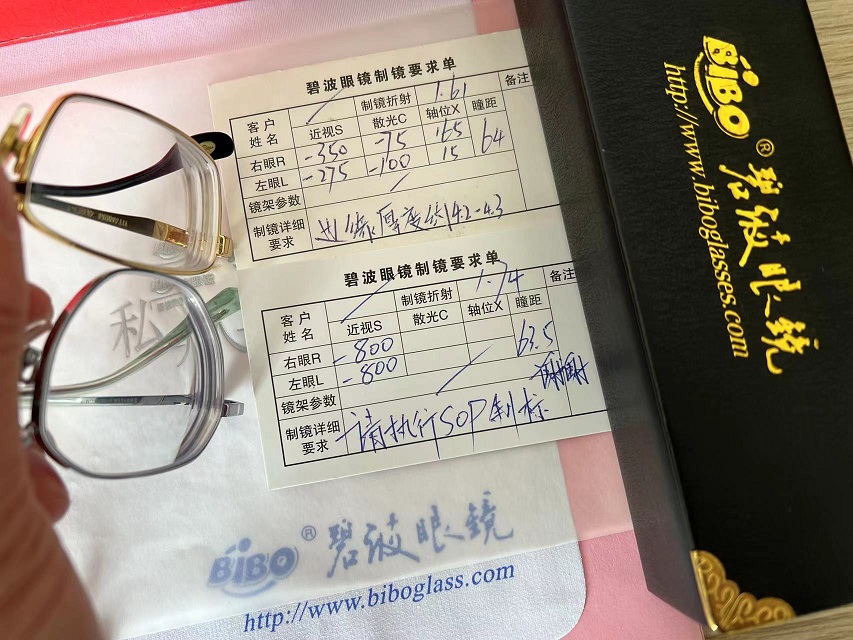 碧波眼镜制镜要求单
客户姓名 制镜折射 1.61 备注
近视S 散光C 轴位X 瞳距
右眼R -350 -75 165 64
左眼L -275 -100 15
镜架参数
制镜详细要求 边缘厚度约4.2-4.3
碧波眼镜制镜要求单
客户姓名 制镜折射 1.74 备注
近视S 散光C 轴位X 瞳距
右眼R -800 63.5
左眼L -800
镜架参数 谢谢
制镜详细要求 请执行SOP制标
私
BiBO® 碧波眼镜
http://www.biboglass.com
BiBO® 碧波眼镜
http://www.biboglasses.com